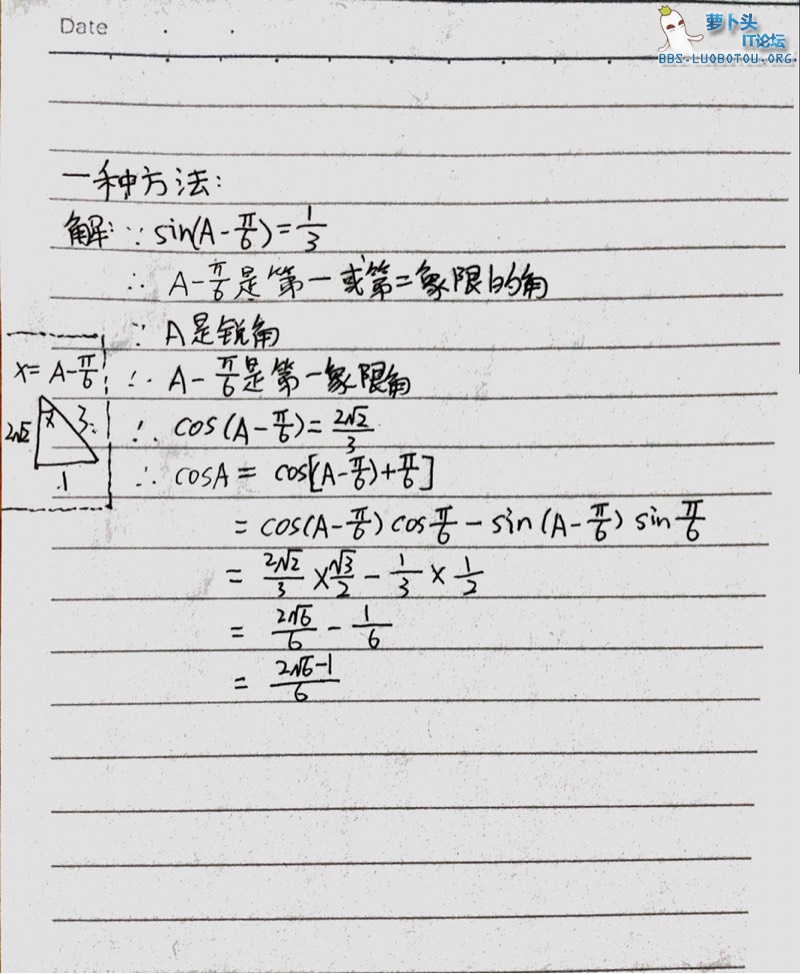 Date
萝卜头
IT论坛
BBS.LUOBOTOU.ORG
一种方法:
解: ∵ sin(A-π/6)=1/3
∴ A-π/6是第一或第二象限的角
∵ A是锐角
x= A-π/6
∴ A-π/6是第一象限角
2√2 x 3
1
∴ cos(A-π/6)=2√2/3
∴ cosA = cos[(A-π/6)+π/6]
= cos(A-π/6)cosπ/6-sin(A-π/6)sinπ/6
= 2√2/3×√3/2-1/3×1/2
= 2√6/6-1/6
= 2√6-1/6